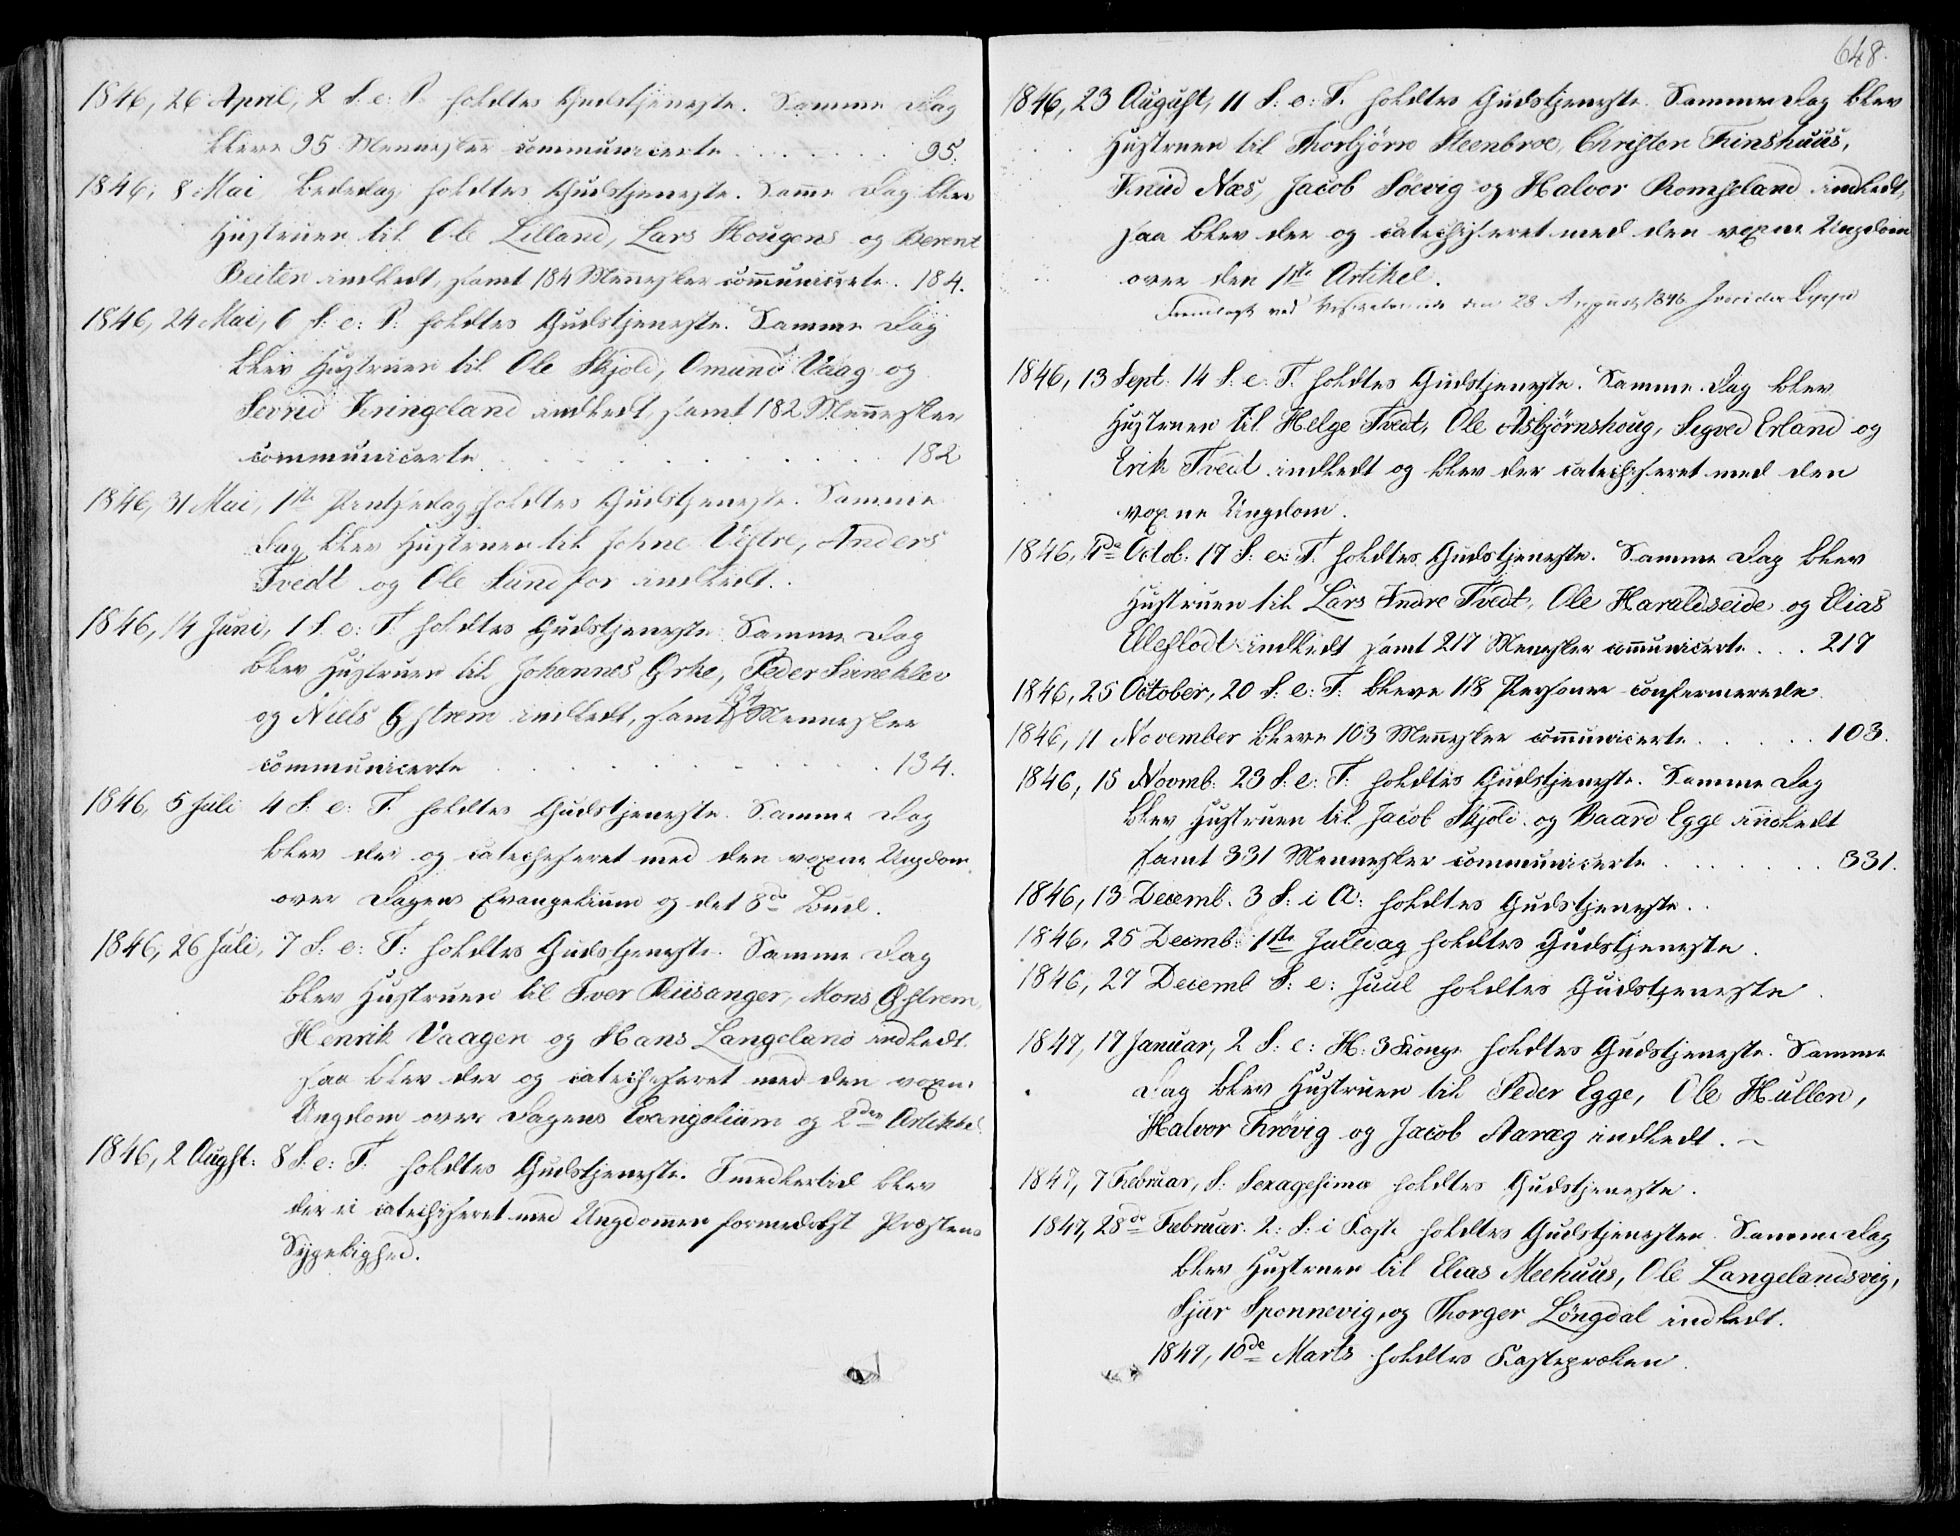 1846, 26 April, 2 S. e: P. holdtes Gudstjeneste. Samme Dag
bleve 95 Mennesker communicerte . . . . . . . 95.
1846, 8 Mai Bededag holdtes Gudstjeneste. Same Dag blev
Hustruen til Ole Lilland, Lars Hougens og Berent
Beiten indledt, samt 184 Mennesker communicerte. 184.
1846, 24 Mai, 6 S. e: P. holdtes Gudstjeneste. Samme Dag
blev Hustruen til Ole Skjold, Omund Vaag og
Sevrid Kringeland indledt, samt 182 Mennesker
communicerte . . . . . . . . 182
1846, 31 Mai, 1ste Pintsedag holdtes Gudstjeneste. Samme
Dag blev Hustruen til Johne Vestre, Anders
Tvedt og Ole Sundfor indledt.
1846, 14 Juni, 1 S. e: T. holdtes Gudstjeneste. Samme Dag
blev Hustruen til Johannes Ørke, Peder
og Niels Østrem indledt, samt 134 Mennesker
communicerte . . . . . . . . 134.
1846, 5 Juli 4 S. e: T. holdtes Gudstjeneste. Samme Dag
blev der og catechiseret med den voxne Ungdom
over Dagens Evangelium og det 8de Bud.
1846, 26 Juli, 7 S. e: T: holdtes Gudstjeneste. Samme Dag
blev Hustruen til Iver Riisanger, Mons Østrem,
Henrik Vaagen og Hans Langeland indledt.
saa blev der og catechiseret med den voxne
Ungdom over Dagens Evangelium og 2den Artikkel.
1846, 2 Augst: 8 S. e: T. holdtes Gudstjeneste. Imedlertid blev
der ei catechiseret med Ungdommen formedelst Præstens
Sygelighed.
648.
1846, 23 August, 11 S. e: T. holdtes Gudstjeneste. Samme Dag blev
Hustruen til Thorbjørn Steenbroe, Christen Finshuus,
Knud Næs, Jacob Söevig og Halvor Romseland indledt,
saa blev der og catechiseret med den voxne Ungdom
over den 1ste Artikel.
Fremlagt ved Visitatsen den 28 August 1846.
1846, 13 Sept: 14 S. e: T. holdtes Gudstjeneste. Samme Dag blev
Hustruen til Helge Tvedt, Ole Asbjørnshoug, Sigved Erland og
Erik Tvedt indledt og blev der catechiseret med den
voxne Ungdom.
1846, 4de Octob: 17 S. e: T. holdtes Gudstjeneste. Samme Dag blev
Hustruen til Lars Indre Tvedt, Ole Haraldseide og Elias
Elleflodt indledt samt 217 Mennesker communicerte . . . 217
1846, 25 October, 20 S. e: T. bleve 118 Personer confermerede
1846, 11 November bleve 103 Mennesker communicerte . . . . . 103.
1846, 15 Novmb: 23 S. e: T: holdtes Gudstjeneste. Samme Dag
blev Hustruen til Jacob Skjold og Baard Egge indledt
samt 331 Mennesker communicerte . . . . . . 331.
1846, 13 Decemb. 3 S: i A: holdtes Gudstjeneste.
1846, 25 Decmb: 1ste Juledag holdtes Gudstjeneste.
1846, 27 Decemb S: e: Juul holdtes Gudstjeneste.
1847, 17 Januar, 2 S. e: H: 3 Konge holdtes Gudstjeneste. Samme
Dag blev Hustruen til Peder Egge, Ole Hullen,
Halvor Frövig og Jacob Aaræg indledt.
1847, 7 Februar, S. Sexagesima holdtes Gudstjeneste.
1847, 28de Februar. 2: S: i Faste holdtes Gudstjenesten. Samme Dag
blev Hustruen til Elias Meehuus, Ole Langelandsvig,
Sjur Sponnevig, og Thorger Löngdal indledt.
1847, 10de Marts holdtes Fasteprædken.